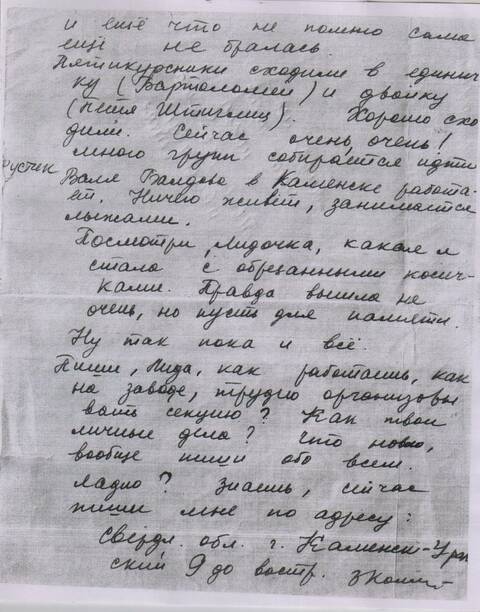 и ещё что не помню сама
ещё не бралась.
Пятикурсники сходили в единич
ку (Вартоломей) и двойку
(Петя Штиглиц). Хорошо схо
дили. Сейчас очень, очень!
много групп собирается идти
Валя Балдова в Каменске работа-
ет. Ничего живёт, занимается
лыжами.
Посмотри, Лидочка, какая я
стала с обрезанными косич-
ками. Правда вышла не
очень, но пусть для памяти.
Ну так пока и всё.
Пиши, Лида, как работаешь, как
на заводе, трудно организовы
вать секцию? Как твои
личные дела? Что ново,
вообще пиши обо всем.
Ладно? Знаешь, сейчас
пиши мне по адресу:
Свердл. обл. г. Каменск-Ура
ский 9 до востр.